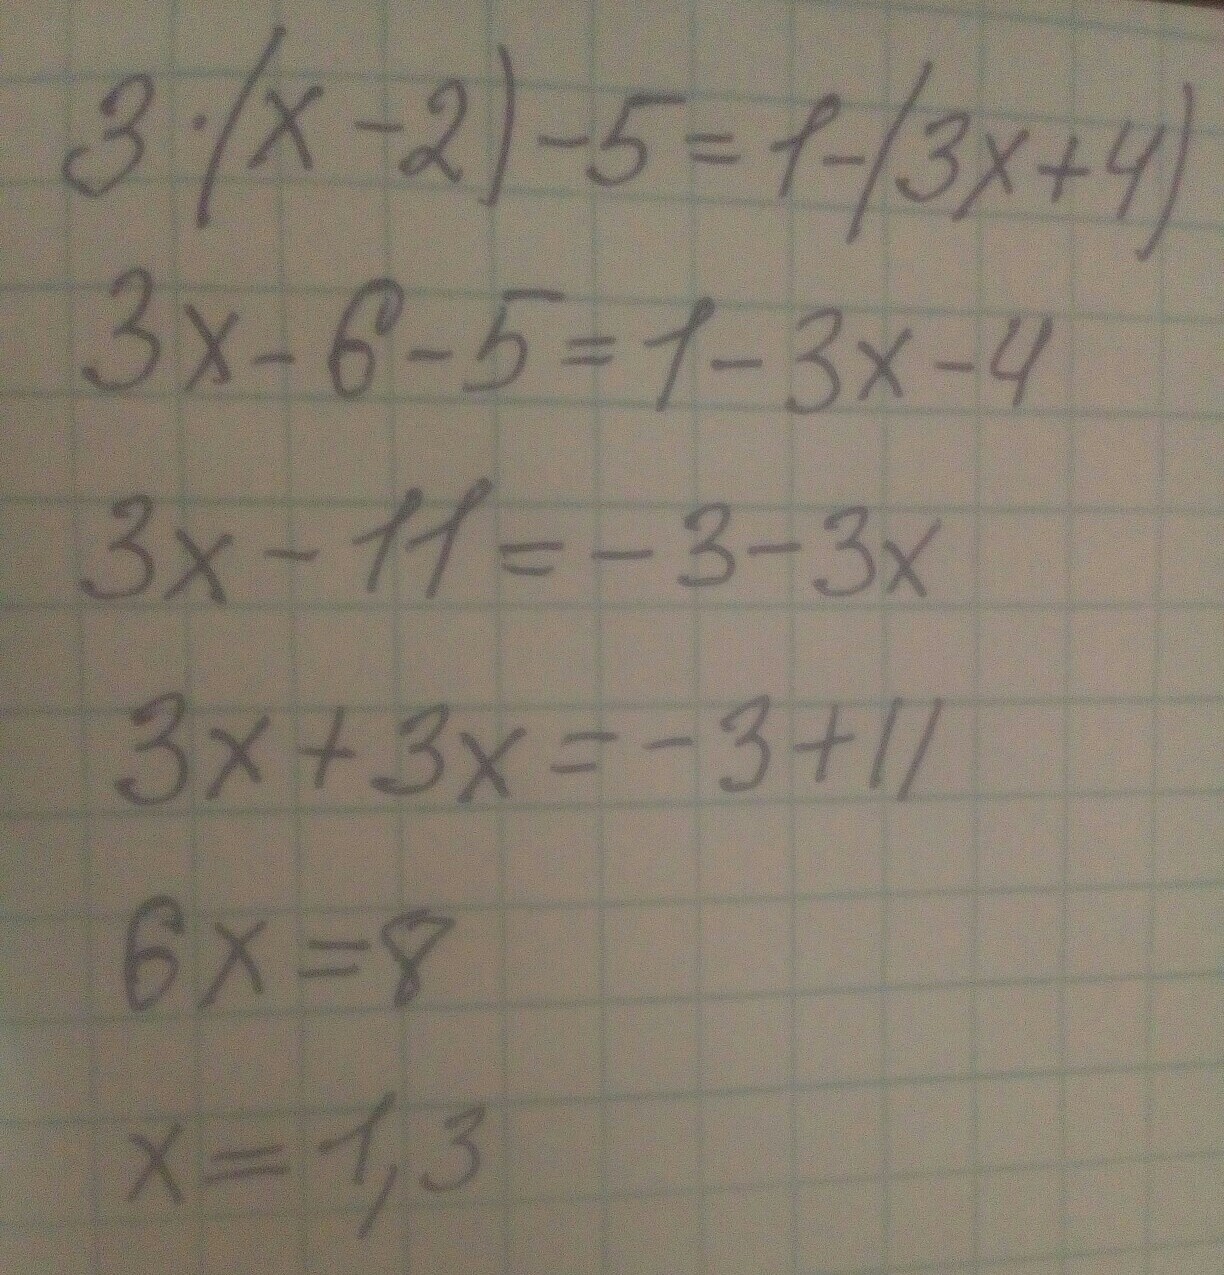 3·(x-2)-5=1-(3x+4)
3x-6-5=1-3x-4
3x-11=-3-3x
3x+3x=-3+11
6x=8
x=1,3